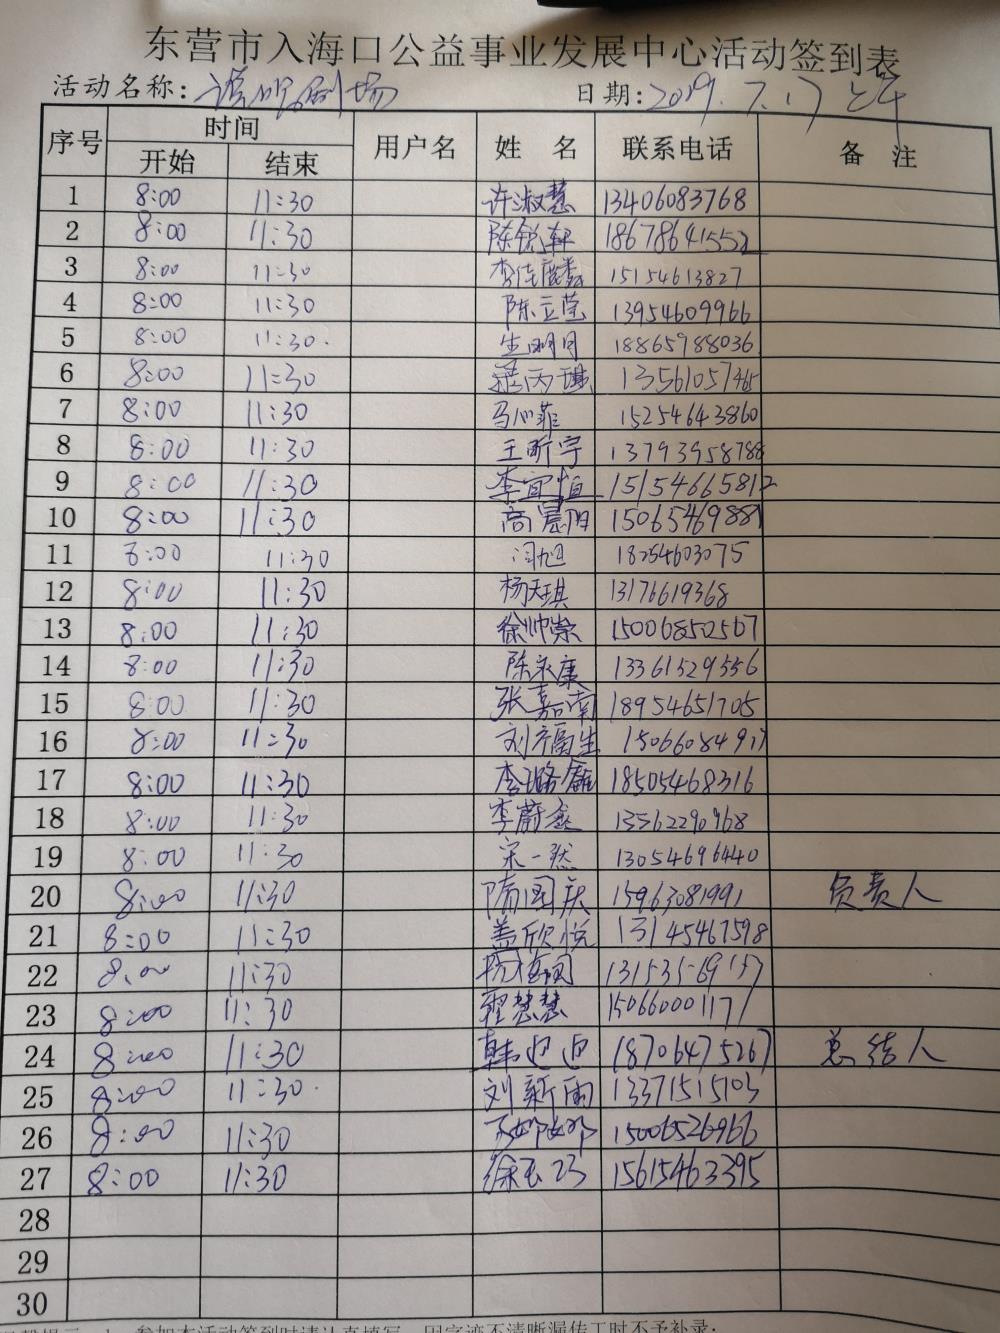 东营市入海口公益事业发展中心活动签到表
活动名称: 日期: 2019.7.17 上午
序号 时间 用户名 姓 名 联系电话 备 注
开始 结束
1 8:00 11:30 许淑慧 13406083768
2 8:00 11:30 陈锐轩 18678641552
3 8:00 11:30 15154613827
4 8:00 11:30 陈立莹 13954609966
5 8:00 11:30. 生明月 18865988036
6 8:00 11:30 13561057465
7 8:00 11:30 马心菲 15254643860
8 8:00 11:30 王昕宇 13793958788
9 8:00 11:30 李宜恒 15154665812
10 8:00 11:30 高晨阳 15065469887
11 8:00 11:30 闫旭 18254603075
12 8:00 11:30 杨天琪 13176619368
13 8:00 11:30 徐帅崇 15006850567
14 8:00 11:30 陈永康 13361529556
15 8:00 11:30 张嘉南 18954651705
16 8:00 11:30 刘福生
17 8:00 11:30 李璐鑫 18505468316
18 8:00 11:30 李蔚鑫 13562290968
19 8:00 11:30 宋一然 13054696440
20 8:00 11:30 隋国庆 15963081991 负责人
21 8:00 11:30 盖欣悦 13145467598
22 8:00 11:30
23 8:00 11:30 翟慧慧 15066000117
24 8:00 11:30 韩迎迎 18706475267 总结人
25 8:00 11:30. 刘新雨 13371515103
26 8:00 11:30 15006526966
27 8:00 11:30 徐玉巧 15615463395
28
29
30
参加本活动签到时请认真填写,因字迹不清晰漏传工时不予补录;